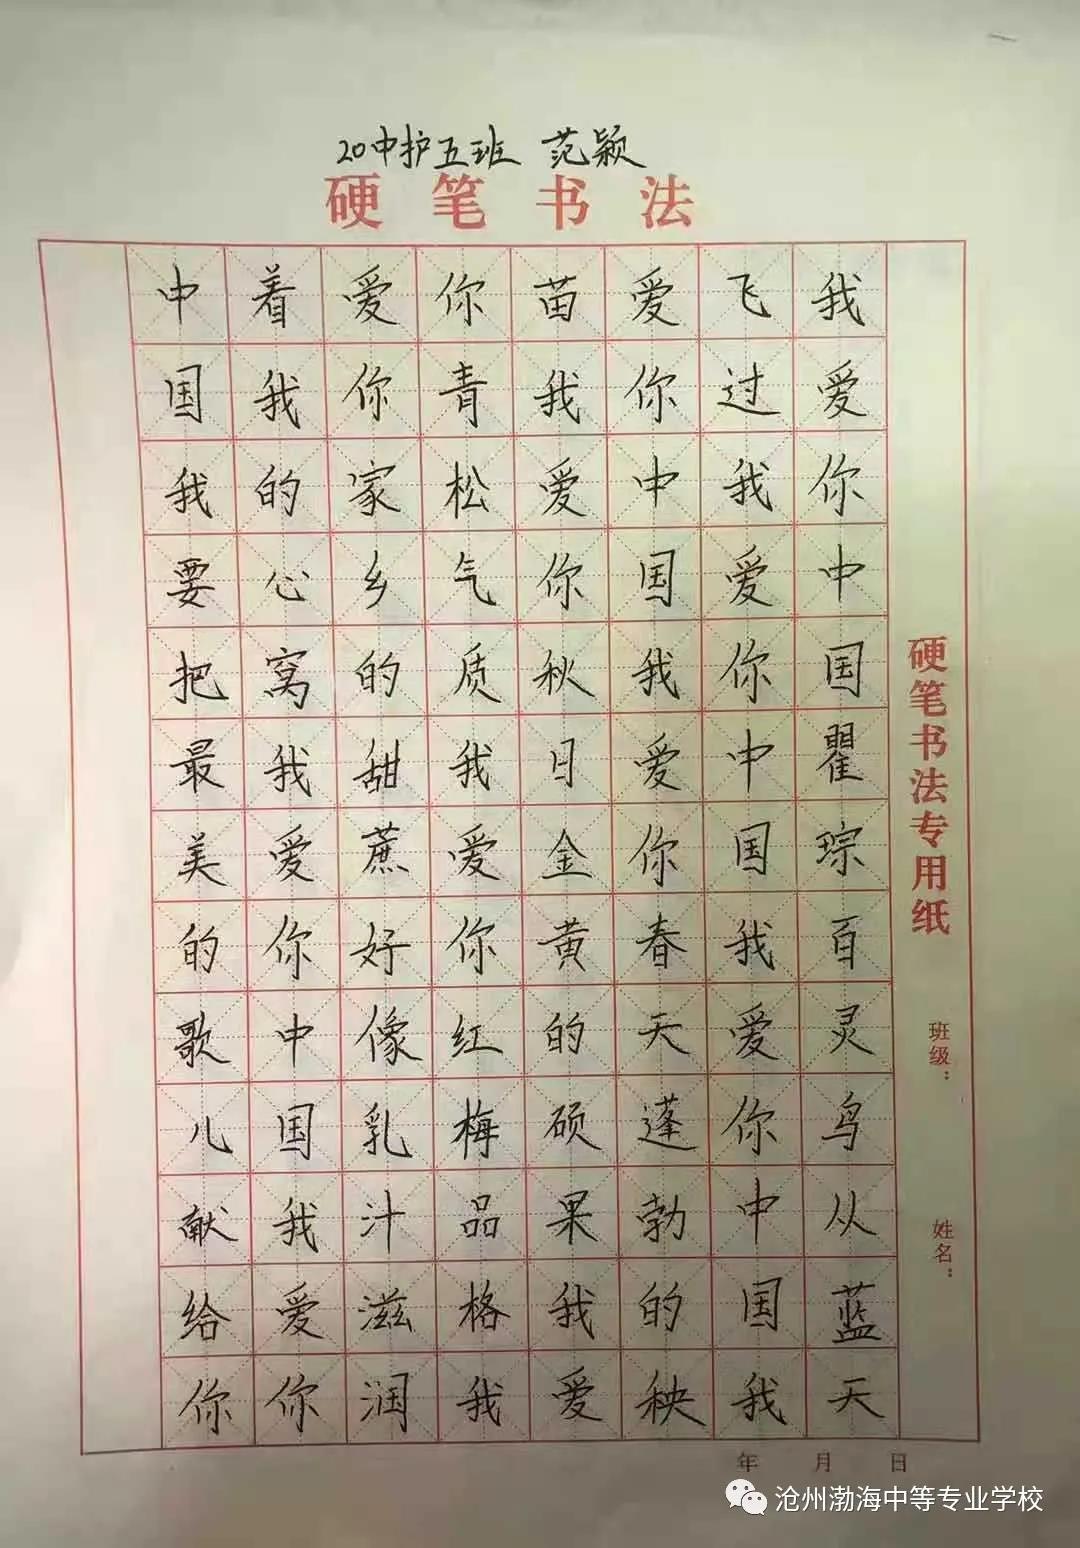 20中护五班 范颖
硬笔书法
我爱你中国瞿琮百灵鸟从蓝天
飞过我爱你中国我爱你中国我
爱你中国我爱你春天蓬勃的秧
苗我爱你秋日金黄的硕果我爱
你青松气质我爱你红梅品格我
爱你家乡的甜蔗好像乳汁滋润
着我的心窝我爱你中国我爱你
中国我要把最美的歌儿献给你
硬笔书法专用纸
班级：
姓名：
年 月 日
沧州渤海中等专业学校